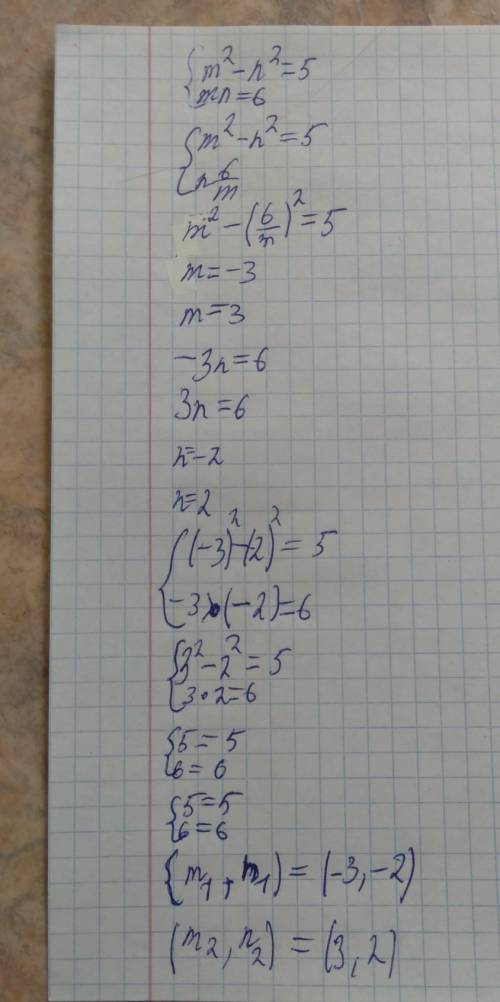 {m² - n² = 5
mn = 6
{m² - n² = 5
n 6/m
m² - (6/m)² = 5
m = -3
m = 3
-3n = 6
3n = 6
n = -2
n = 2
{(-3)² - (2)² = 5
-3) • (-2) = 6
{3² - 2² = 5
3 • 2 = 6
{5 = 5
6 = 6
{5 = 5
6 = 6
(m₁, n₁) = (-3, -2)
(m₂, n₂) = (3, 2)